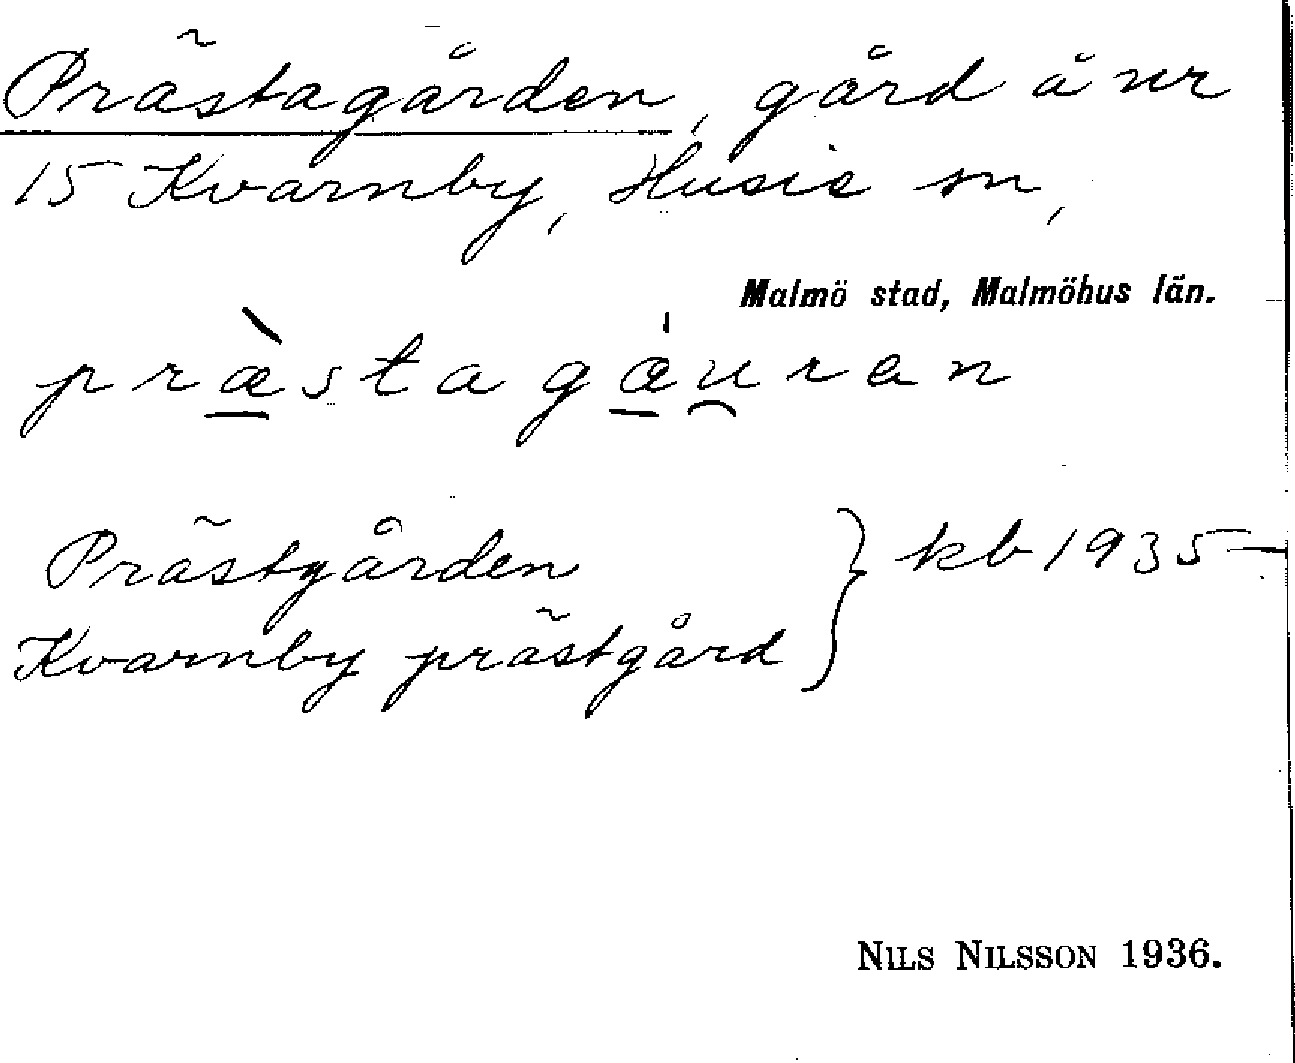 Prästagården, gård å nr
15 Kvarnby, Husie sn,
Malmö stad, Malmöhus län.
præ̀stagæ̍u̯ran
Prästgården
Kvarnby prästgård } kb 1935–
NILS NILSSON 1936.